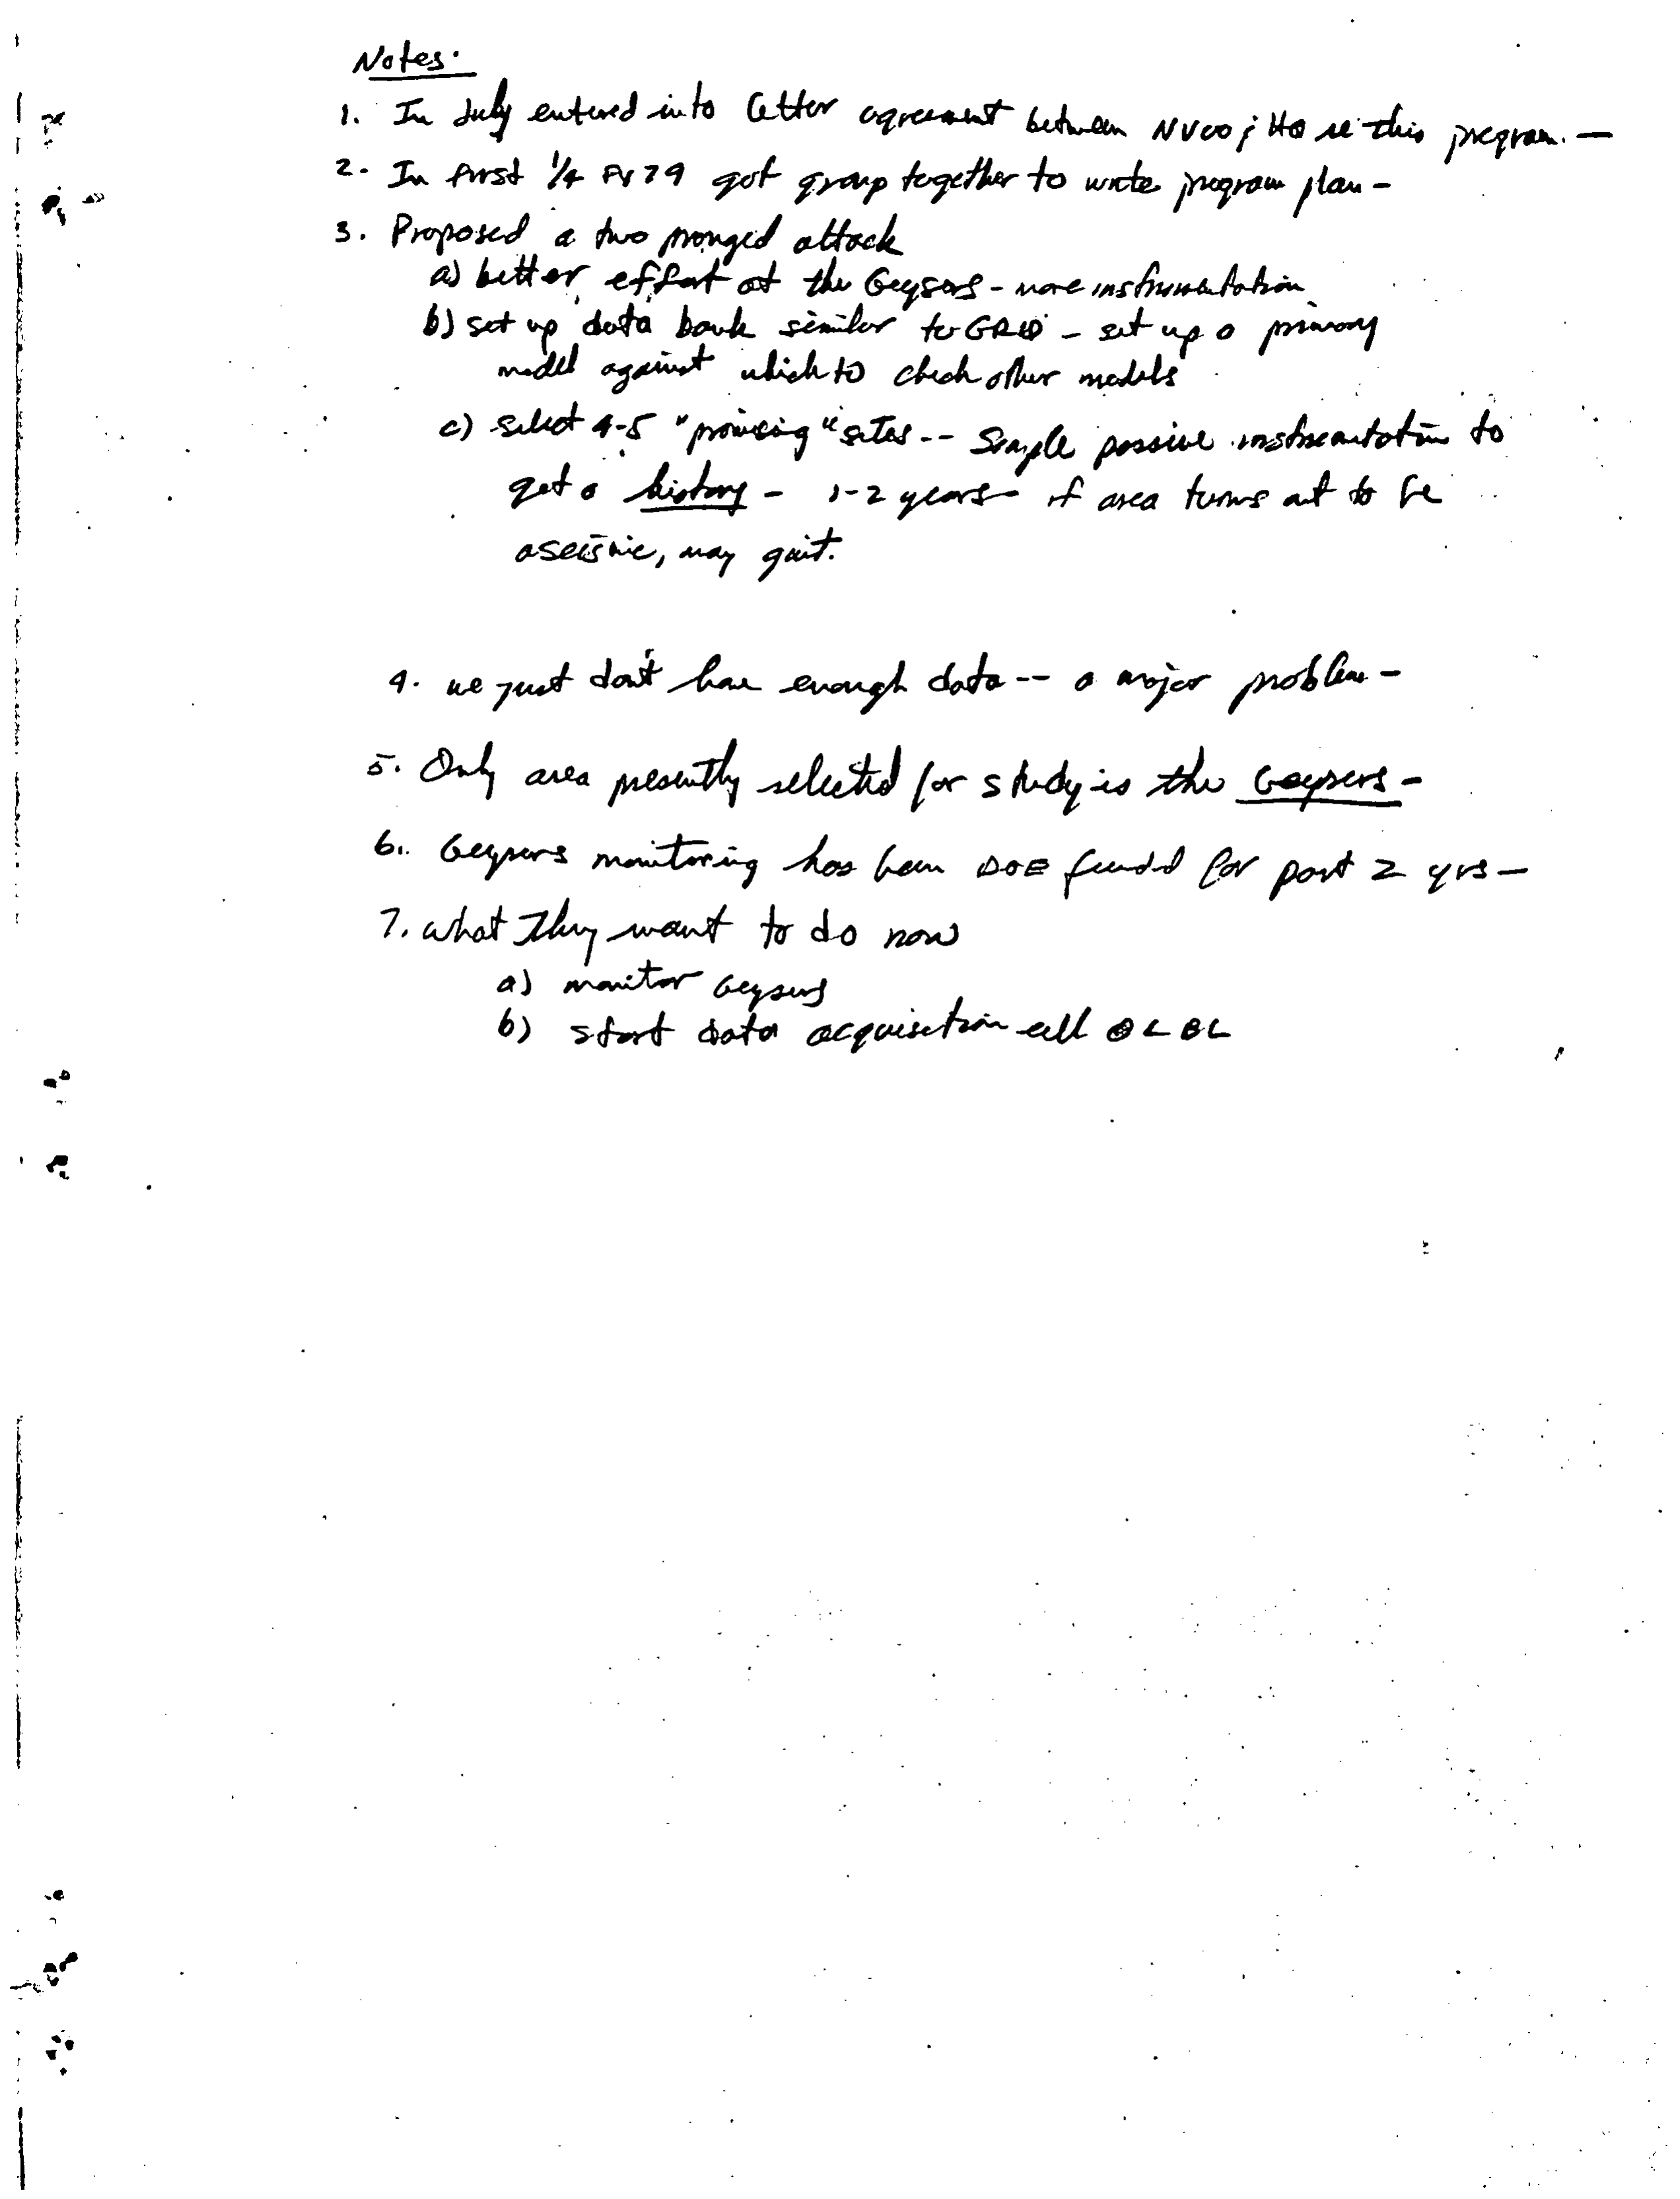 Notes.
1. In July entered into letter agreement between NVOO & HQ re this program. —
2. In first 1/4 FY79 got group together to write program plan -
3. Proposed a two pronged attack
a) better effort at the Geysers - more instrumentation
b) set up data bank similar to GRID - set up a primary
model against which to check other models
c) select 4-5 "promising" sites -- Simple passive instrumentation to
get a history - 1-2 years - if area turns out to be
aseismic, may quit.
4. we just don't have enough data -- a major problem -
5. Only area presently selected for study is the Geysers -
6. Geysers monitoring has been DOE funded for past 2 yrs —
7. what they want to do now
a) monitor Geysers
b) start data acquisition cell @ LBL